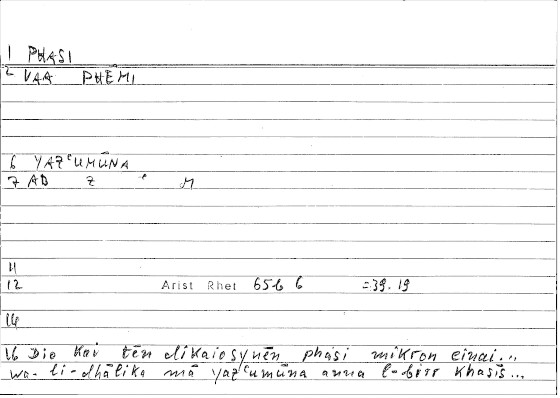 1 PHASI
2 VAA PHĒMI
6 YAZʿUMŪNA
7 AD Z ʿ M
11
12 Arist Rhet 65b 6 =39.19
14
16 Dio kai tēn dikaiosynēn phasi mikron einai...
wa-li-dhālika mā yazʿumūna anna l-birr khasīs...